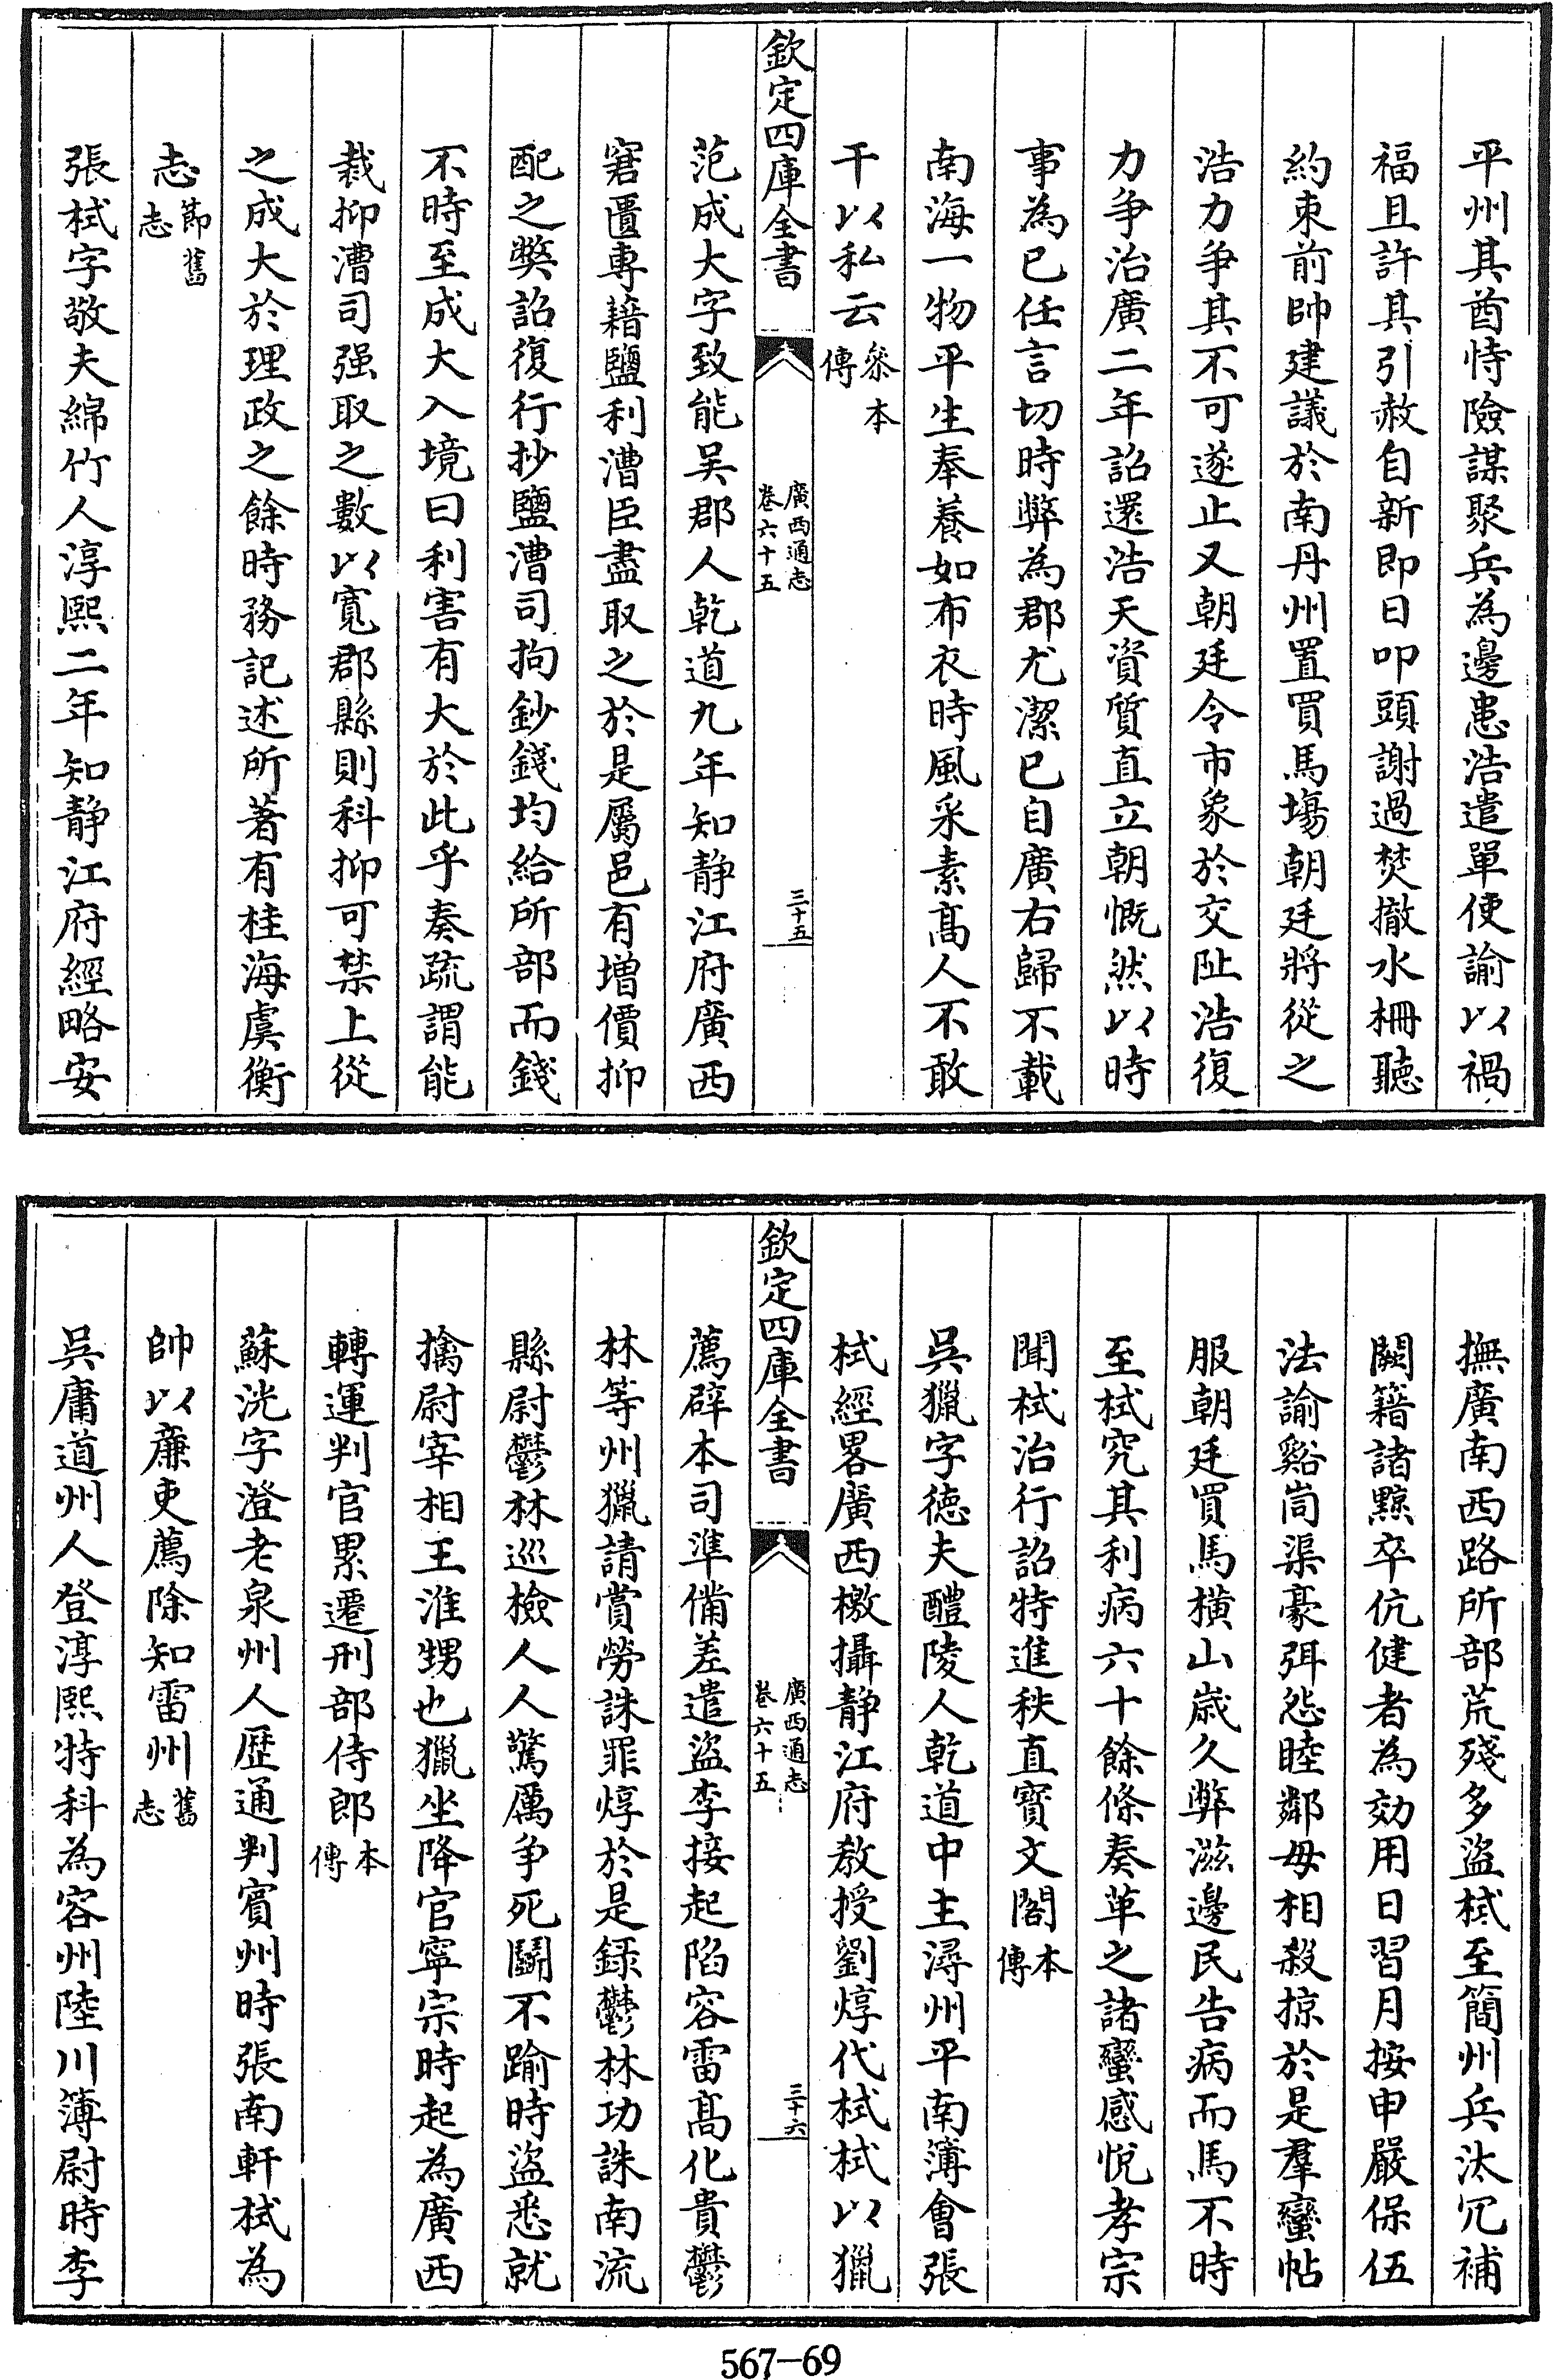 平州其酋恃險謀聚兵為邊患浩遣單使諭以禍
福且許其引赦自新即日叩頭謝過焚撤水柵聽
約束前帥建議於南丹州置買馬塲朝廷將從之
浩力争其不可遂止又朝廷令市象於交阯浩復
力争治廣二年詔還浩天資質直立朝慨然以時
事為已任言切時弊為郡尤潔已自廣右歸不載
南海一物平生奉養如布衣時風采素髙人不敢
干以私云叅本傳
欽定四庫全書
廣西通志
卷六十五
三十五
范成大字致能吴郡人乾道九年知静江府廣西
窘匱專藉鹽利漕臣盡取之於是屬邑有增價抑
配之獘詔復行抄鹽漕司拘鈔錢均給所部而錢
不時至成大入境曰利害有大於此乎奏疏謂能
裁抑漕司强取之數以寛郡縣則科抑可禁上從
之成大於理政之餘時務記述所著有桂海虞衡
志節舊志
張栻字敬夫綿竹人淳熙二年知静江府經略安
撫廣南西路所部荒殘多盜栻至簡州兵汰冗補
闕籍諸黥卒伉健者為効用日習月按申嚴保伍
法諭谿峝渠豪弭怨睦鄰毋相殺掠於是羣蠻帖
服朝廷買馬横山歲久弊滋邊民告病而馬不時
至栻究其利病六十餘條奏革之諸蠻感悅孝宗
聞栻治行詔特進秩直寶文閣本傳
吳獵字徳夫醴陵人乾道中主潯州平南簿會張
栻經畧廣西檄攝静江府教授劉焞代栻栻以獵
欽定四庫全書
廣西通志
卷六十五
三十六
薦辟本司準備差遣盜李接起陷容雷髙化貴鬱
林等州獵請賞勞誅罪焞於是録鬱林功誅南流
縣尉鬱林巡檢人人驚厲争死鬭不踰時盜悉就
擒尉宰相王淮甥也獵坐降官寧宗時起為廣西
轉運判官累遷刑部侍郎本傳
蘇洸字澄老泉州人歴通判賓州時張南軒栻為
帥以廉吏薦除知雷州舊志
吳庸道州人登淳熙特科為容州陸川簿尉時李
567—69